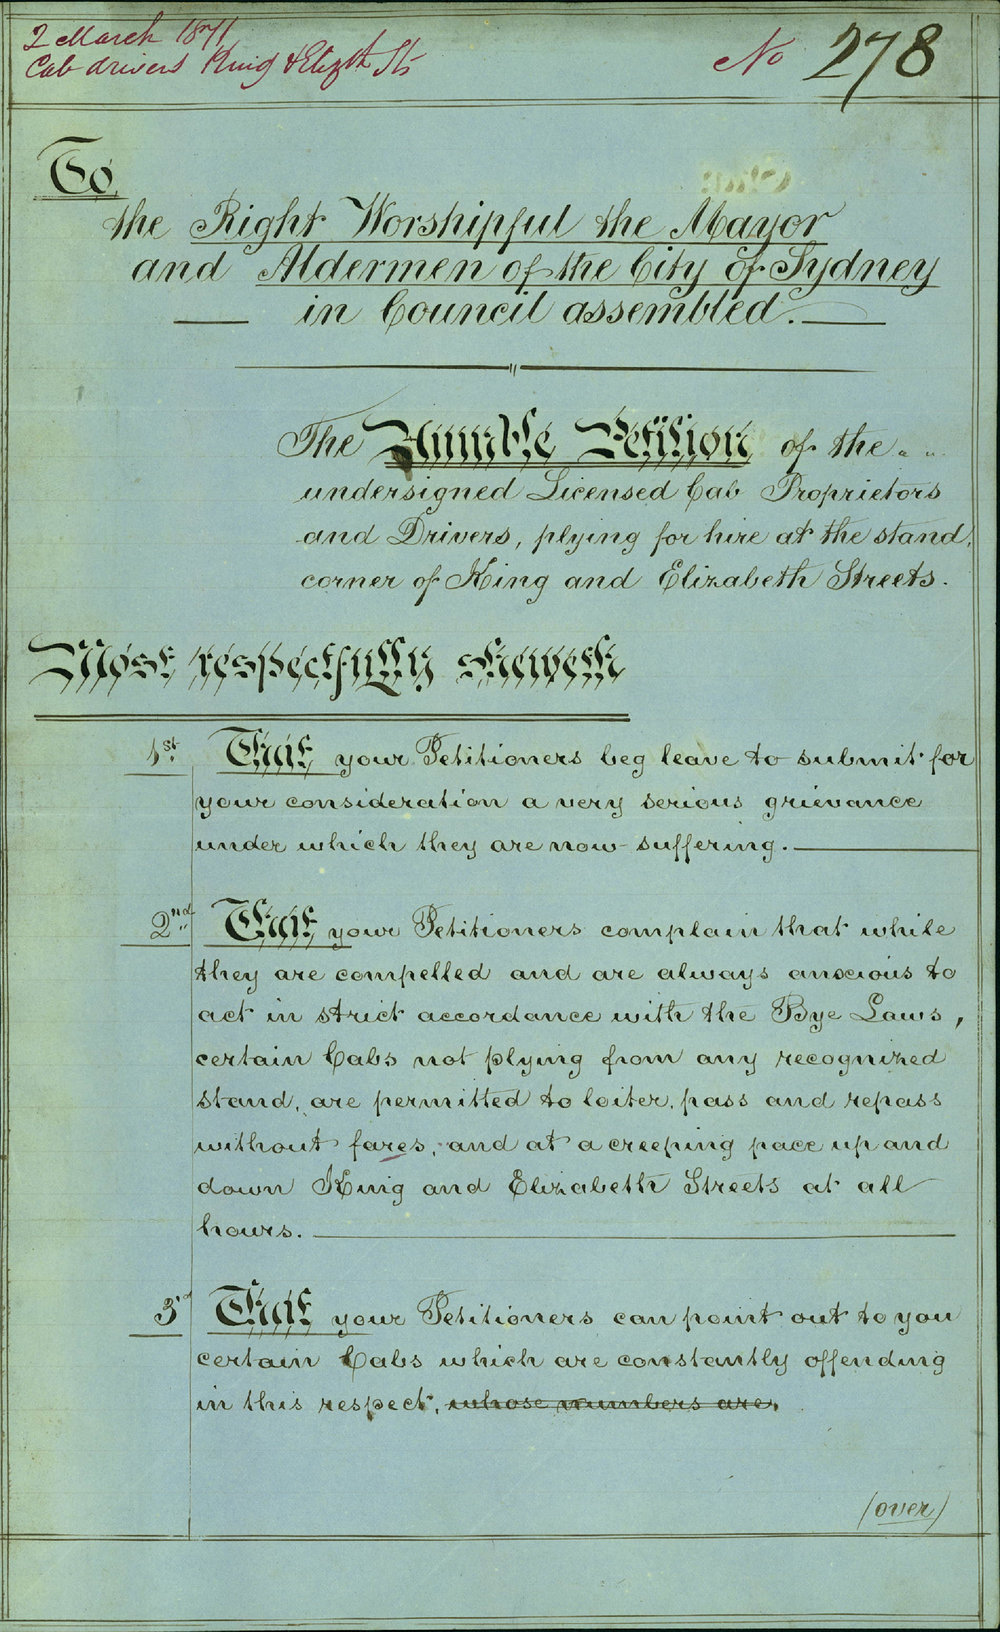 2 March 1871
Cab drivers King & Elizth Sts
No 278
To
the Right Worshipful the Mayor
and Aldermen of the City of Sydney
in Council assembled.
The Humble Petition of the
undersigned Licensed Cab Proprietors
and Drivers, plying for hire at the stand,
corner of King and Elizabeth Streets.
Most respectfully sheweth
1st. That your Petitioners beg leave to submit for
your consideration a very serious grievance
under which they are now suffering.
2nd That your Petitioners complain that while
they are compelled and are always anxious to
act in strict accordance with the Bye Laws,
certain Cabs not plying from any recognized
stand, are permitted to loiter, pass and repass
without fares, and at a creeping pace up and
down King and Elizabeth Streets at all
hours.
3d That your Petitioners can point out to you
certain Cabs which are constantly offending
in this respect, whose numbers are,
(over)